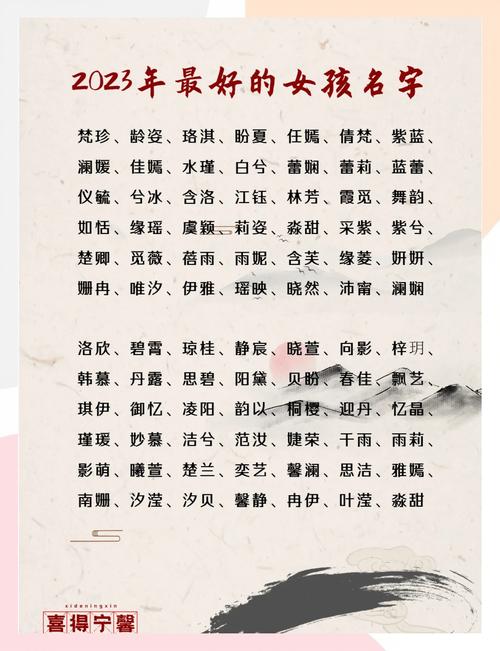 2023年最好的女孩名字
梵珍、龄姿、珞淇、盼夏、任嫣、倩梵、紫蓝、
澜媛、佳嫣、水瑾、白兮、蕾娴、蕾莉、蓝蕾、
仪毓、兮冰、含洛、江钰、林芳、霞觅、舞韵、
如恬、缘瑶、虞颖、莉姿、淼甜、采紫、紫兮、
楚卿、觅薇、蓓雨、雨妮、含芙、缘菱、妍妍、
姗冉、唯汐、伊雅、瑶映、晓然、沛甯、澜娴
洛欣、碧霄、琼桂、静宸、晓萱、向影、梓玥、
韩慕、丹露、思碧、阳黛、贝盼、春佳、飘艺、
琪伊、御忆、凌阳、韵以、桐樱、迎丹、忆晶、
瑾瑗、妙慕、洁兮、范汝、婕荣、干雨、雨莉、
影萌、曦萱、楚兰、奕艺、馨澜、思洁、雅嫣、
南姗、汐滢、汐贝、馨静、冉伊、叶滢、淼甜
xideningxin
喜得宁馨